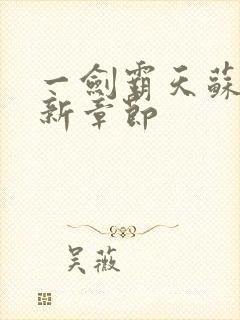 一劍霸天蘇
新章節
吴薇